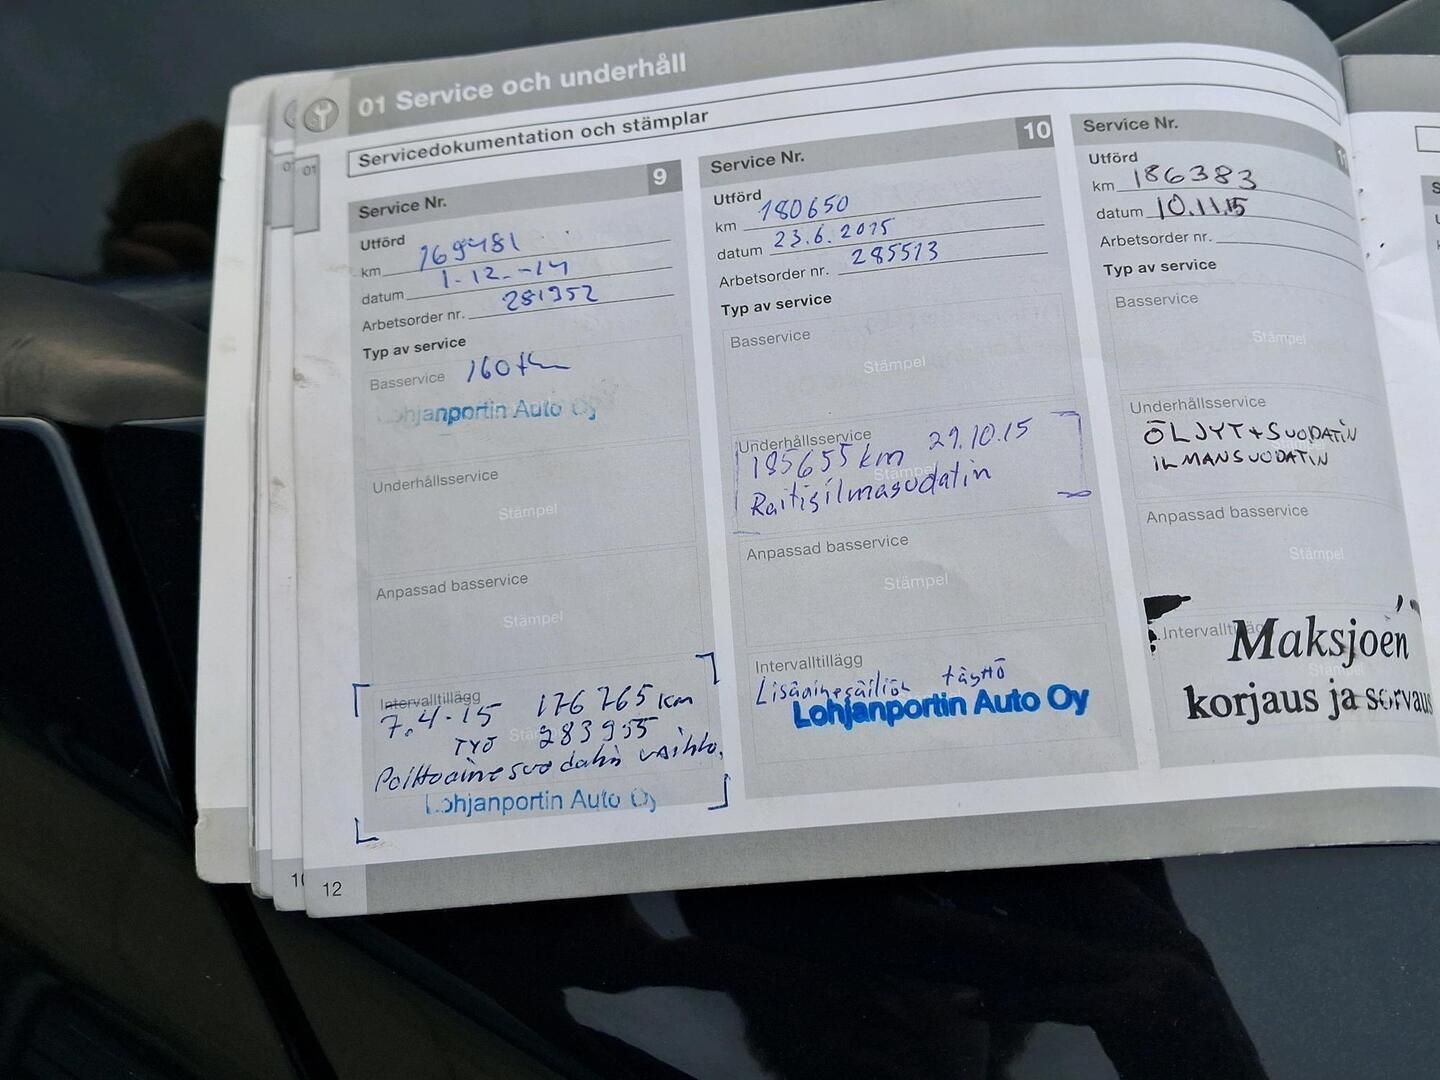 01 Service och underhåll
Servicedokumentation och stämplar
01
Service Nr. 9
Utförd
km 169481
datum 1.12.-14
Arbetsorder nr. 281952
Typ av service
Basservice 160 tkm
Lohjanportin Auto Oy
Underhållsservice
Stämpel
Anpassad basservice
Stämpel
Intervalltillägg
7.4.15 176765 km
TYÖ 283955
Polttoainesuodatin vaihto.
Lohjanportin Auto Oy
Service Nr. 10
Utförd
km 180650
datum 23.6.2015
Arbetsorder nr. 285513
Typ av service
Basservice
Stämpel
Underhållsservice
185655 km 29.10.15
Stämpel
Raitisilmasuodatin
Anpassad basservice
Stämpel
Intervalltillägg
Lisäainesäiliön täyttö
Lohjanportin Auto Oy
Service Nr.
Utförd
km 186383
datum 10.11.15
Arbetsorder nr.
Typ av service
Basservice
Stämpel
Underhållsservice
ÖLJYT+SUODATIN
ILMANSUODATIN
Anpassad basservice
Stämpel
Intervalltillägg
Maksjoen
korjaus ja sorvaus
12